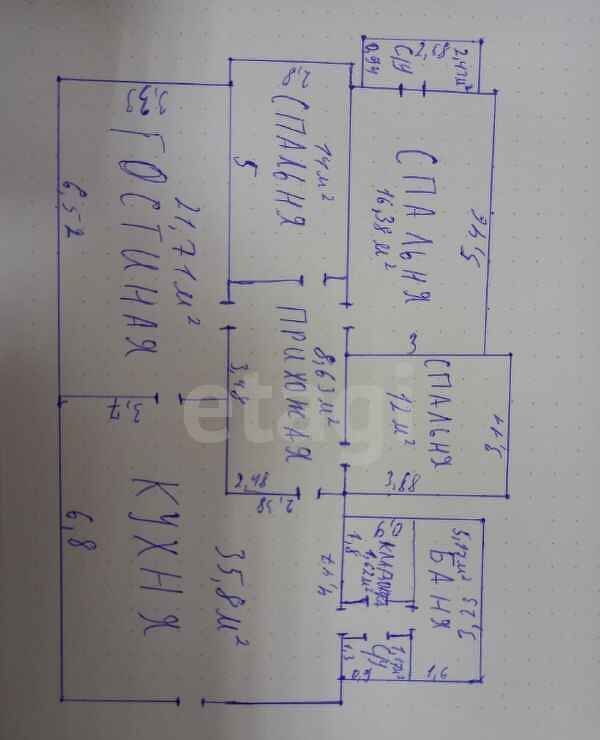 С/У
2,58
2,42 м²
0,94
СПАЛЬНЯ
16,38 м²
5,46
3
2,8
СПАЛЬНЯ
14 м²
5
3,33
ГОСТИНАЯ
21,71 м²
6,52
ПРИХОЖАЯ
8,63 м²
3,48
2,48
СПАЛЬНЯ
12 м²
3,11
3,88
3,7
2,38
КУХНЯ
35,8 м²
6,8
4,17
0,9
КЛАДОВКА
1,62 м²
1,8
БАНЯ
5,12 м²
3,25
1,6
С/У
1,17 м²
1,3
0,9
etagi